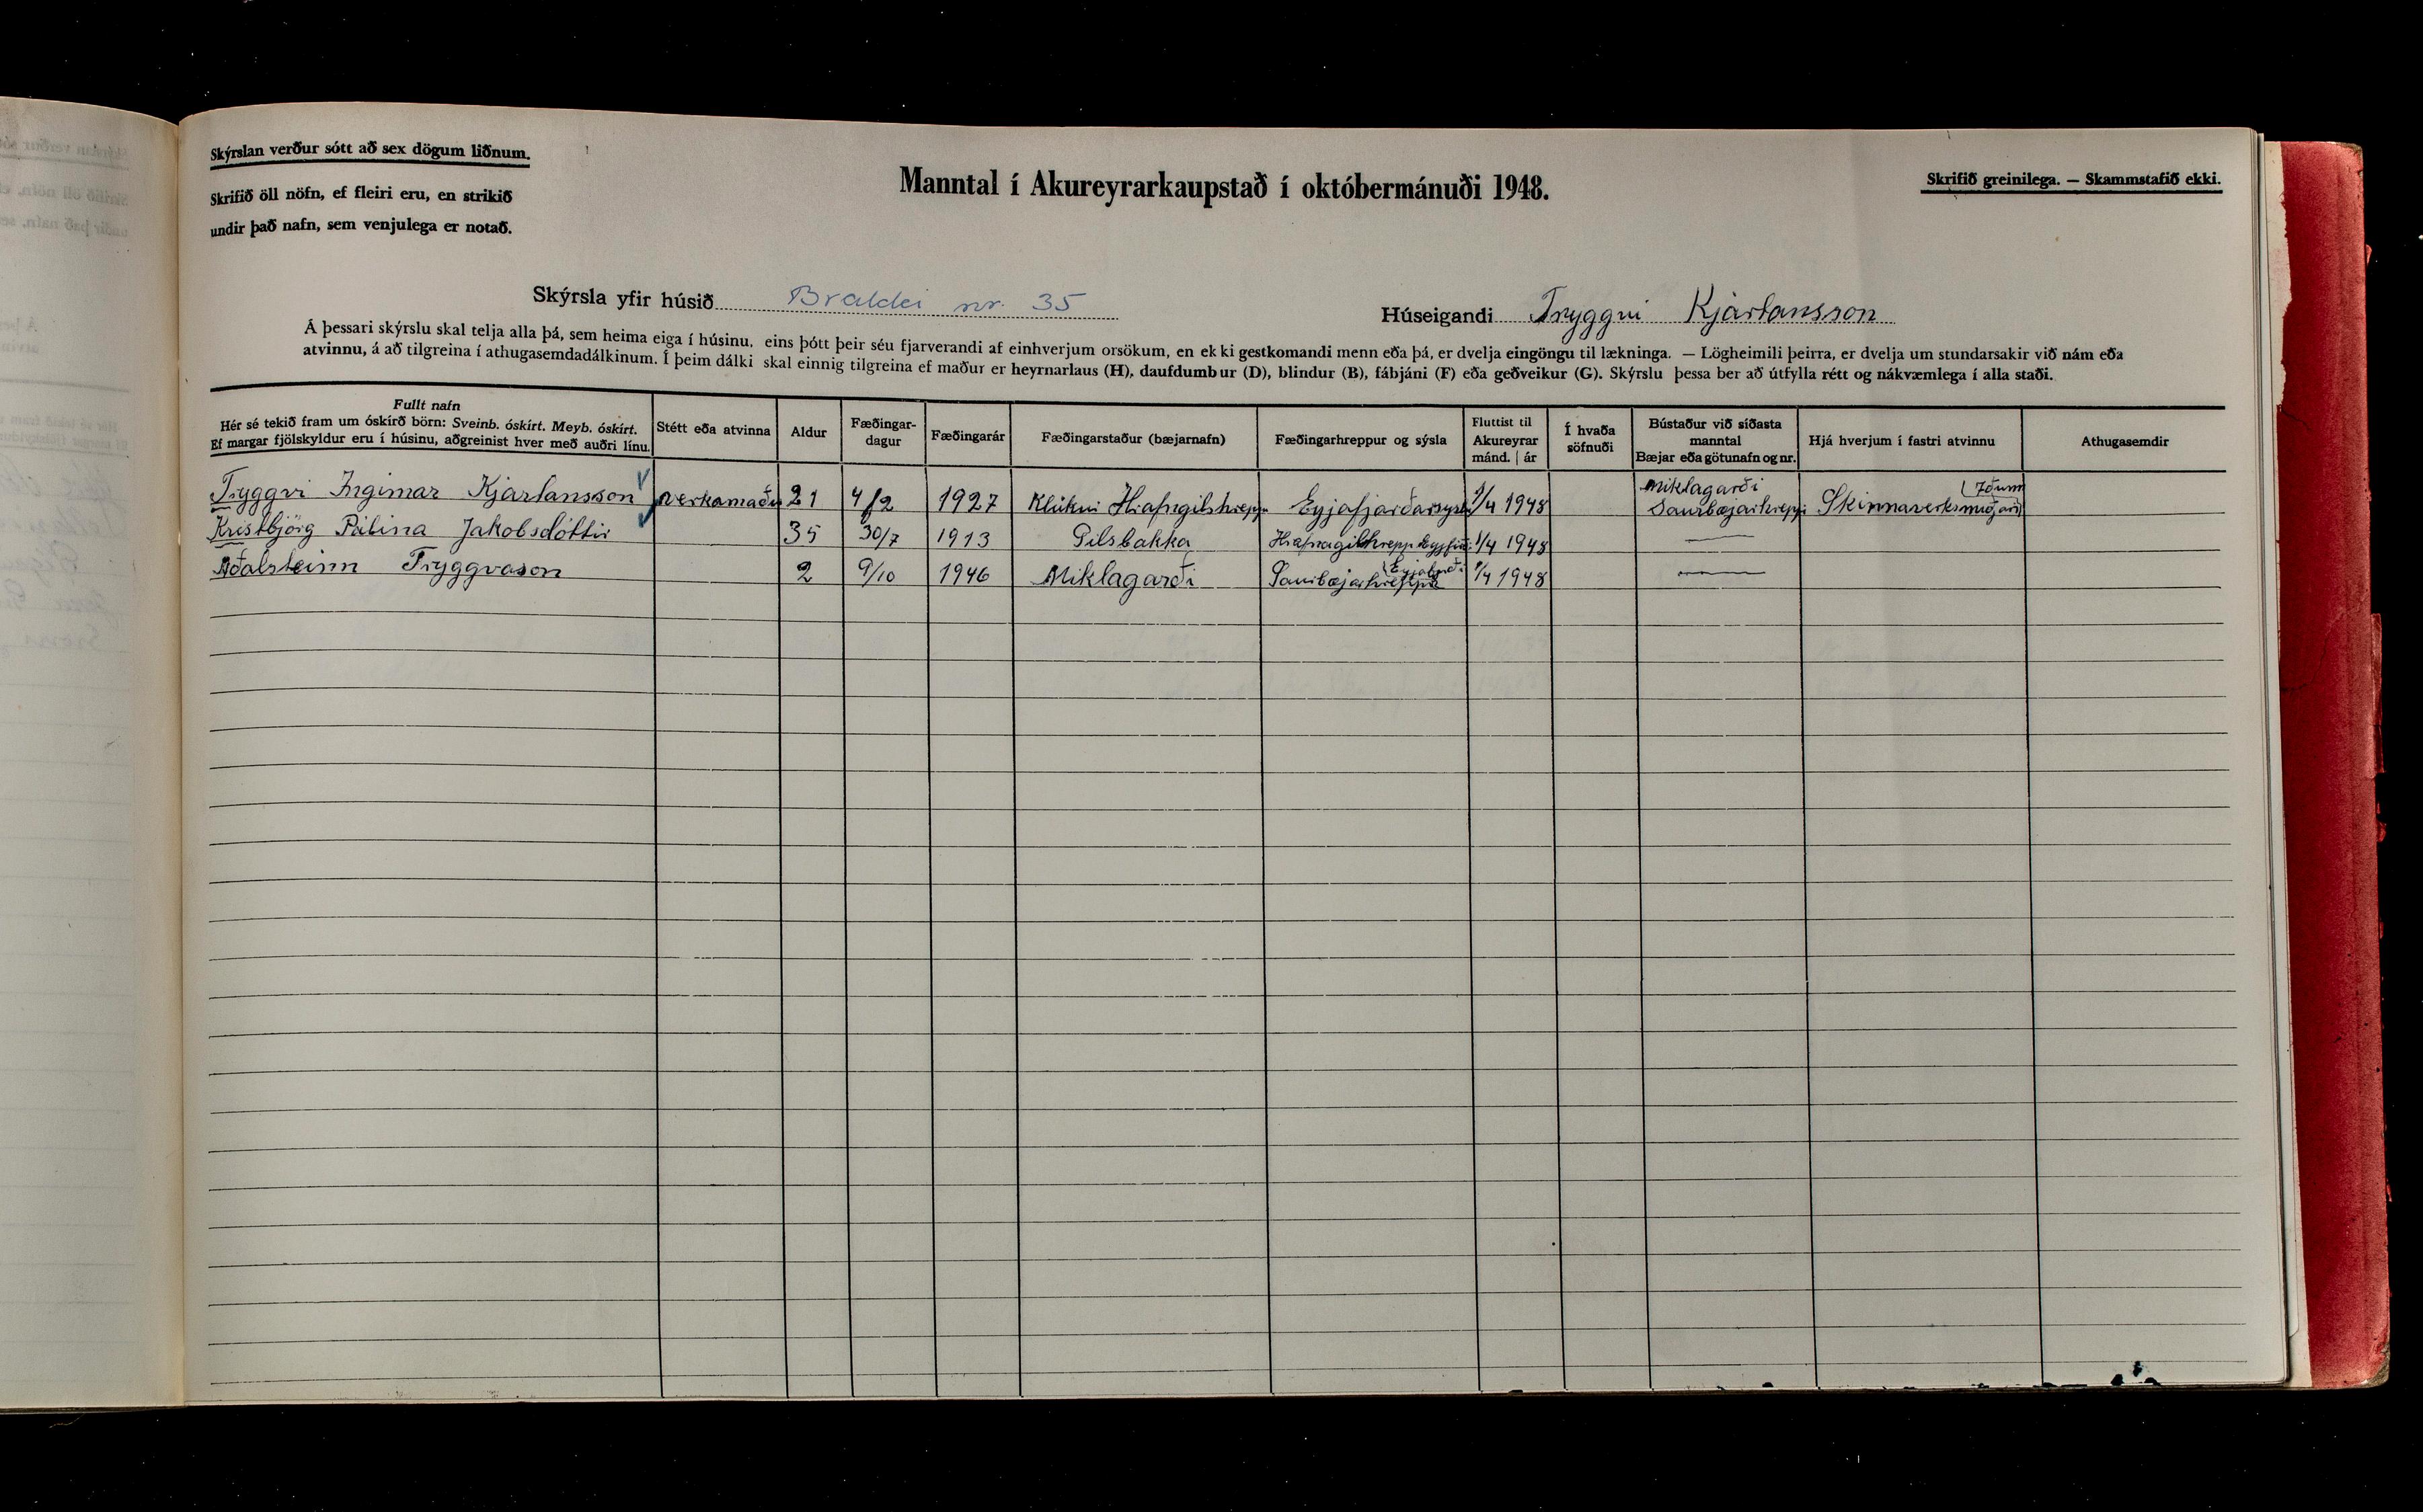 Skýrslan verður sótt að sex dögum liðnum.
Skrifið öll nöfn, ef fleiri eru, en strikið
undir það nafn, sem venjulega er notað.
Manntal í Akureyrarkaupstað í októbermánuði 1948.
Skrifið greinilega. — Skammstafið ekki.
Skýrsla yfir húsið nr. 35
Húseigandi Tryggvi Kjartansson
Á þessari skýrslu skal telja alla þá, sem heima eiga í húsinu, eins þótt þeir séu fjarverandi af einhverjum orsökum, en ekki gestkomandi menn eða þá, er dvelja eingöngu til lækninga. — Lögheimili þeirra, er dvelja um stundarsakir við nám eða
atvinnu, á að tilgreina í athugasemdadálkinum. Í þeim dálki skal einnig tilgreina ef maður er heyrnarlaus (H), daufdumbur (D), blindur (B), fábjáni (F) eða geðveikur (G). Skýrslu þessa ber að útfylla rétt og nákvæmlega í alla staði.
Fullt nafn
Hér sé tekið fram um óskírð börn: Sveinb. óskírt. Meyb. óskírt.
Ef margar fjölskyldur eru í húsinu, aðgreinist hver með auðri línu.
Stétt eða atvinna
Aldur
Fæðingar-
dagur
Fæðingarár
Fæðingarstaður (bæjarnafn)
Fæðingarhreppur og sýsla
Fluttist til
Akureyrar
mánd. | ár
Í hvaða
söfnuði
Bústaður við síðasta
manntal
Bæjar eða götunafn og nr.
Hjá hverjum í fastri atvinnu
Athugasemdir
Tryggvi Ingimar Kjartansson verkamaður 21 4/2 1927 Klúkui Hrafngilshrepp Eyjafjarðarsysla 1/4 1948 Miklagarði Saurbæjarhreppi Skinnaverksmiðjan Iðunn
Kristbjörg Pálína Jakobsdóttir 35 30/7 1913 Gilsbakka Hrafnagilshrepp Eyjafirði 1/4 1948 —
Aðalsteinn Tryggvason 2 9/10 1946 Miklagarði Saurbæjarhreppi 1/4 1948 —